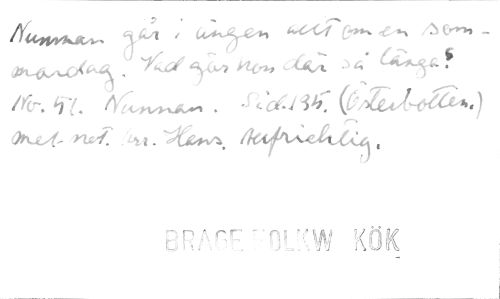 Nunnan går i ängen allt om en som-
mardag. Vad gör hon där så länge?
No. 51. Nunnan. Sid. 135. (Österbotten.)
med not. arr. Hans Aufrichtig.
BRAGE FOLKW KÖK